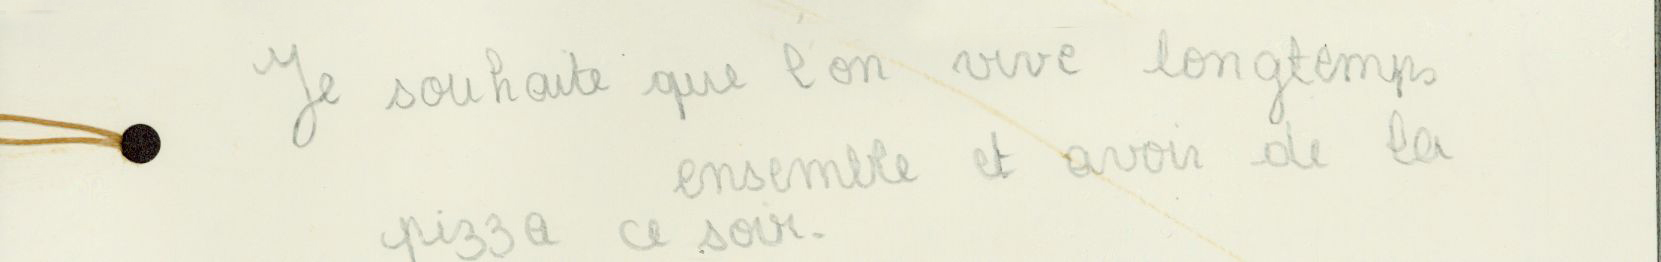 Je souhaite que l'on vive longtemps
ensemble et avoir de la
pizza ce soir.